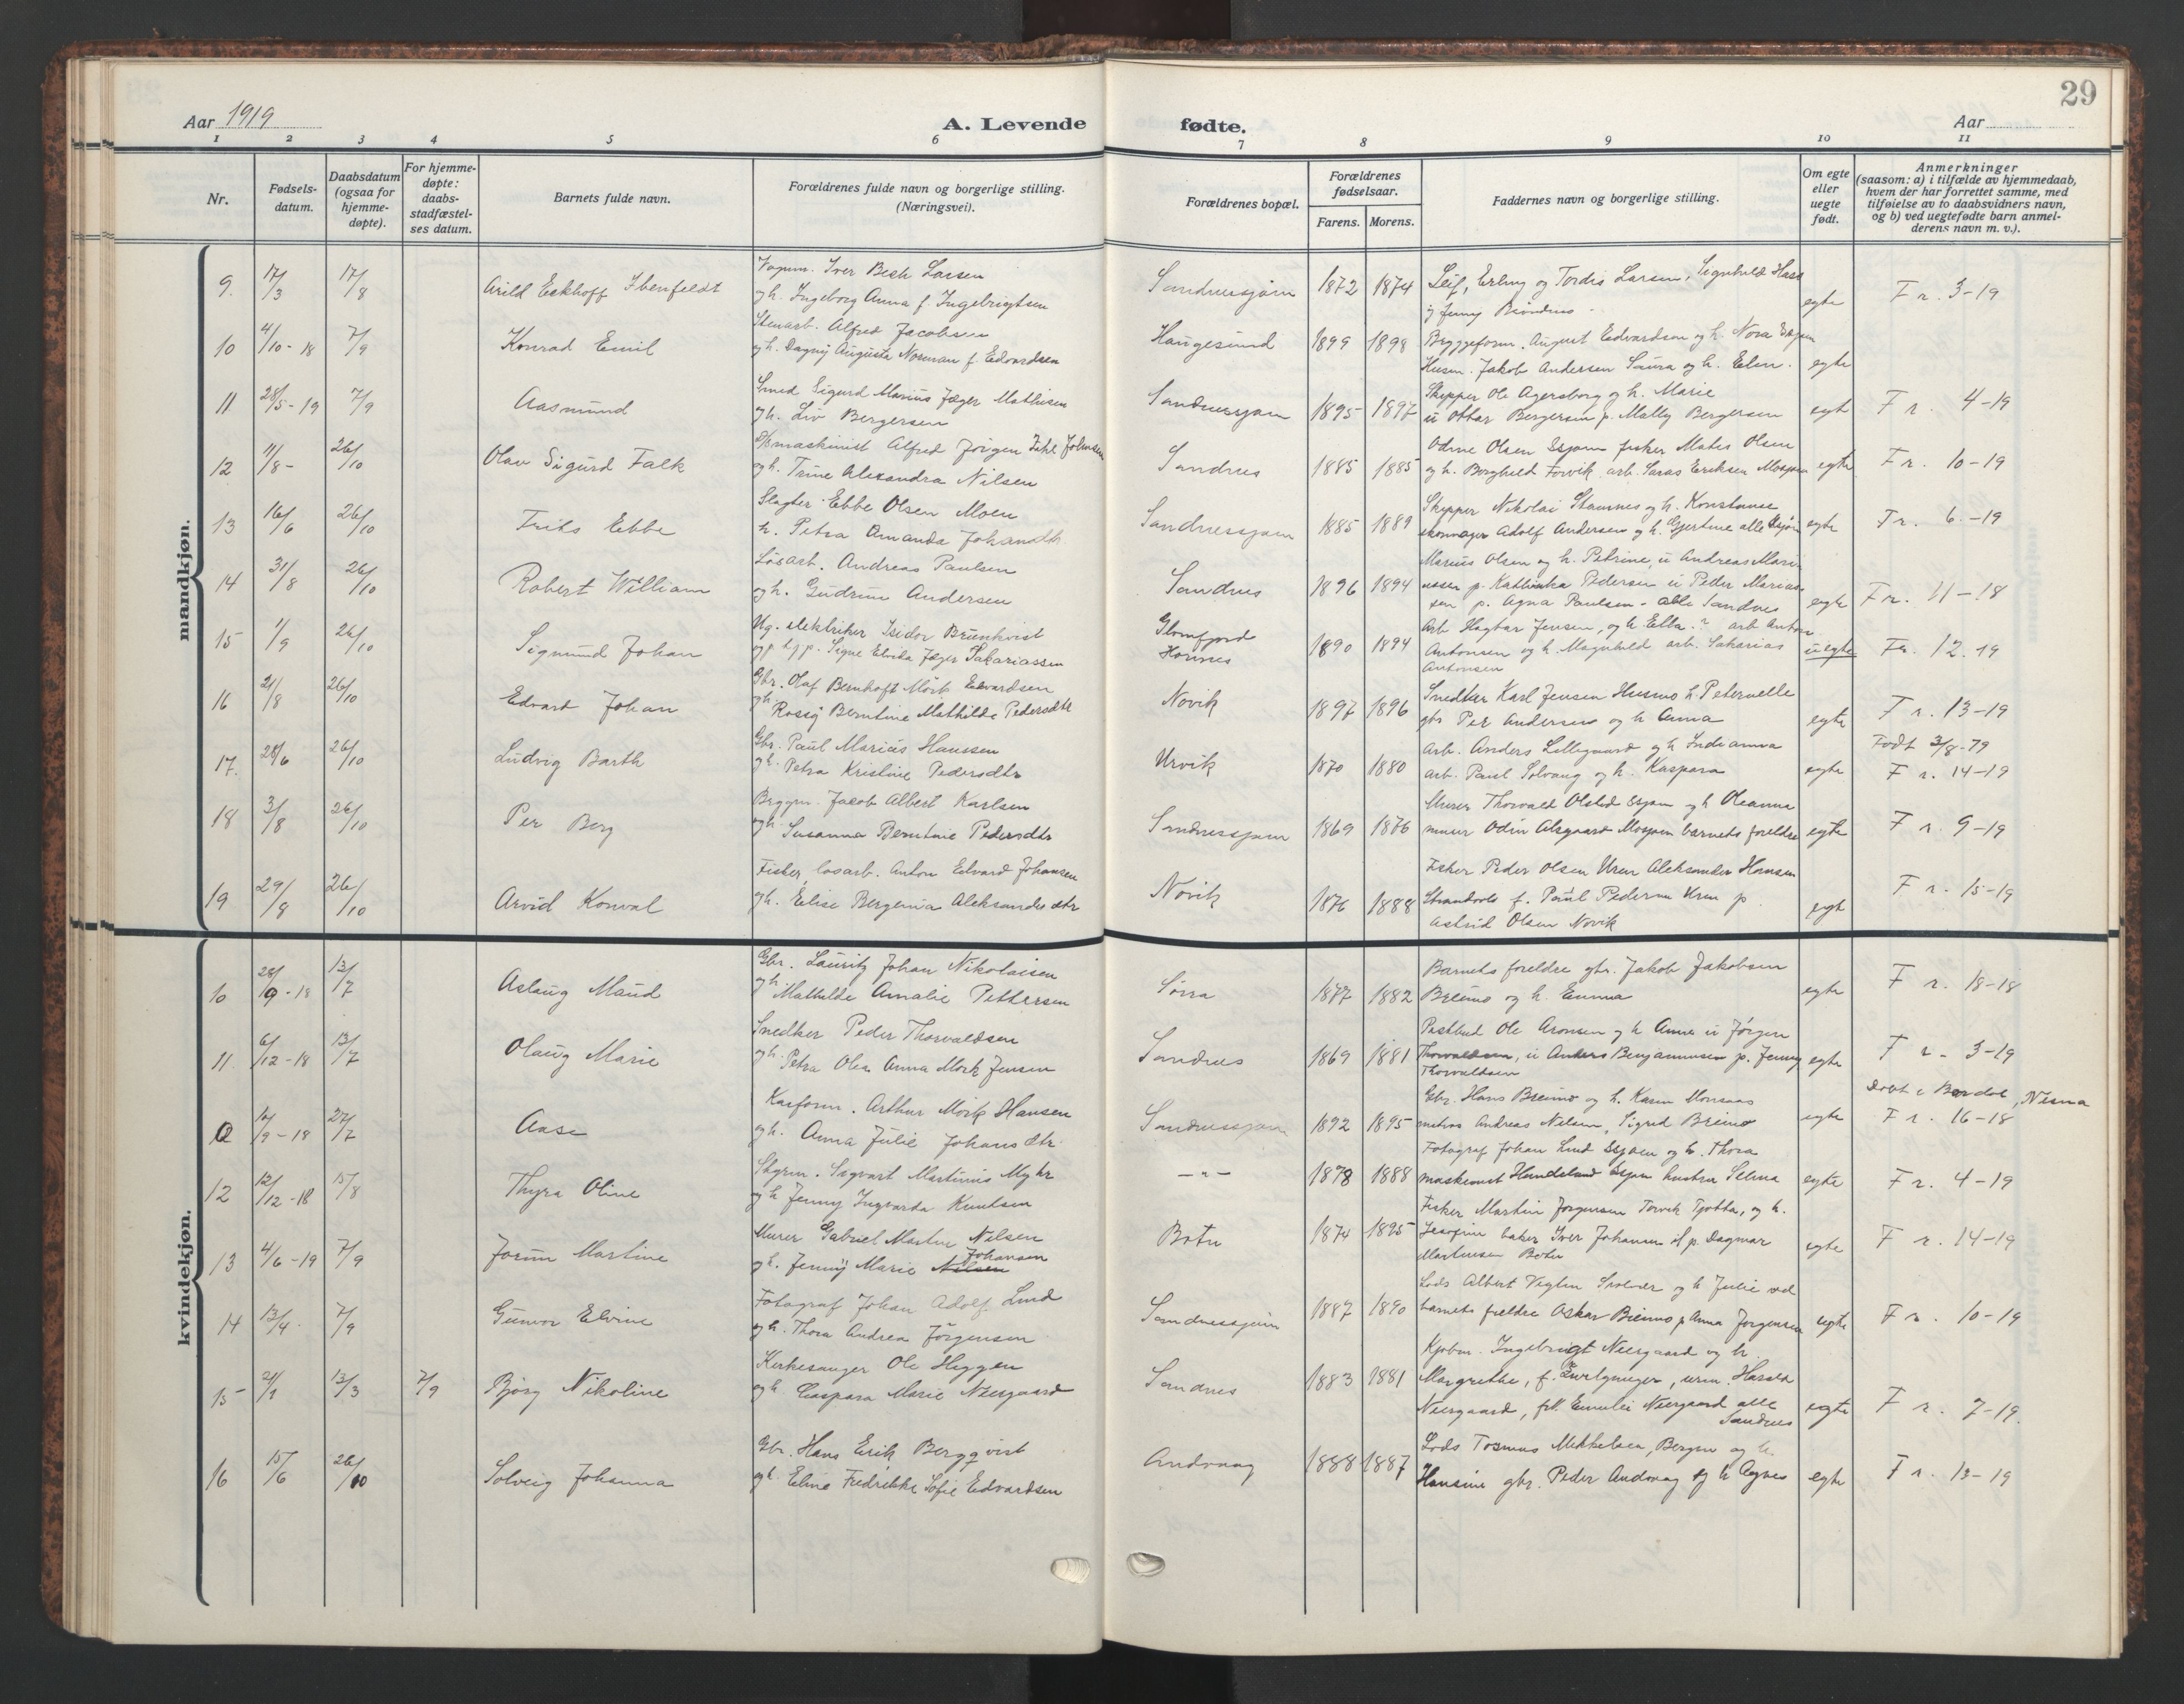 29
Aar 1919
A. Levende fødte.
Aar
1 2 3 4 5 6 7 8 9 10 11
Nr.
Fødsels-
datum.
Daabsdatum
(ogsaa for
hjemme-
døpte).
For hjemme-
døpte:
daabs-
stadfæstel-
ses datum.
Barnets fulde navn.
Forældrenes fulde navn og borgerlige stilling.
(Næringsvei).
Forældrenes bopæl.
Forældrenes
fødselsaar.
Farens. Morens.
Faddernes navn og borgerlige stilling.
Om egte
eller
uegte
født.
Anmerkninger
(saasom: a) i tilfælde av hjemmedaab,
hvem der har forrettet samme, med
tilføielse av to daabsvidners navn,
og b) ved uegtefødte barn anmel-
derens navn m. v.).
mandkjøn.
9. 17/3 17/8 Arild Eckhoff Ibenfeldt
Iver Bech Larsen
og h. Ingeborg Anna f. Ingebrigtsen
Sandnessjøen 1872 1874
Leif, Erling og Tordis Larsen, Signhild
og Jenny
egte F r. 3-19
10 4/10-18 7/9 Konrad Emil
Stenarb. Alfred Jacobsen
og h. Dagny Augusta Norman f. Edvardsen
Haugesund 1899 1898
Bryggeform. August Edvardsen og h. Nora
Husm. Jakob Andersen Saura og h. Elen.
egte
11 28/5-19 7/9 Aasmund
Smed Sigurd Marius Jæger Mathisen
og h. Liv Bergersen
Sandnessjøen 1895 1897
Skipper Ole Agersborg og h. Marie
u Ottar Bergersen p. Mally Bergersen
egt F r. 4-19
12 11/8- 26/10 Olav Sigurd Falk
D/Smaskinist Alfred Jörgen Johnsen
og h. Trine Alexandra Nilsen
Sandnes 1885 1885
Odine Olsen Ssjøen fisker Mathis Olsen
og h. Borghild Forvik arb. Eriksen Mosjøen
egte F r. 10-19
13 16/6 26/10 Frits Ebbe
Slagter Ebbe Olsen Moen
h. Petra Amanda Johansdtr
Sandnessjøen 1885 1889
Skipper Nikolai Stamnes og h. Konstanse
skomager Adolf Andersen og h. Gjertine alle Ssjøen
egte F r. 6.-19
14 31/8 26/10 Robert William
Løsarb. Andreas Paulsen
og h. Gudrun Andersen
Sandnes 1896 1894
Marius Olsen og h. Petrine, u Andreas Mari-
ussen p. Kathinka Pedersen u Peder Marius-
sen p. Agna Paulsen - alle Sandnes
egte F r. 11-18
15 1/9 26/10 Sigmund Johan
Ug. elektriker Isidor Brunkvist
og p. Signe Elvida Jæger Sakariassen
Glomfjord
Hornes
1890 1894
Arb. Hagbar Jensen, og h. Ella. ? arb Anton
Antonsen og h. Magnhild arb. Sakarias
Antonsen
uegte F r. 12.19
16 21/8 26/10 Edvard Johan
Gbr. Olaf Bernhoft Mörk Edvardsen
og h. Rossy Berntine Mathilde Pedersdtr
Novik 1897 1896
Snedker Karl Jensen Husmo h. Peternelle
gbr Per Andersen og h Anna
egte F r. 13-19
17. 28/6 26/10 Ludvig Barth
Gbr. Paul Marius Hanssen
og h. Petra Kristine Pedersdtr
Urvik 1870 1880
Arb. Anders Lillegaard og h Indianna
arb. Paul Solvang og h. Kaspara
egte
Født 3/8-79
F r. 14-19
18 3/8 26/10 Per Berg
Jacob Albert Karlsen
og h. Susanna Berntine Pedersdtr
Sandnessjøen 1869 1876
Murer Thorvald Olstad Ssjøen og h Oleanna
murer Odin Alsgaard Mosjøen barnets foreldre
egte F r. 9-19
19 29/8 26/10 Arvid Konval
Fisker, løsarb. Anton Edvard Johansen
og h. Elise Bergenia Aleksandersdtr
Novik 1876 1888
Fisker Peder Olsen Uren Aleksander Hansen
f. Paul Pedersen Uren p
Astrid Olsen Novik
egt F r. 15-19
kvindekjøn.
10 28/9-18 13/7 Aslaug Maud
Gbr. Lauritz Johan Nikolaisen
og h. Mathilde Amalie Pettersen
Sørra 1877 1882
Barnets foreldre gbr. Jakob Jakobsen
Breimo og h. Emma
egte F r. 18-18
11. 6/12-18 13/7 Olaug Marie
Snedker Peder Thorvaldsen
og h. Petra Olea Anna Mörk Jensen
Sandnes 1869 1881
Postbud Ole Aronsen og h Anna u Jørgen
Thorvaldsen, u Anders Benjaminsen p. Jenny
Thorvaldsen
egte F r. 3-19
a 10/9-18 27/7 Aase
Arthur Mörk Hansen
og h. Anna Julie Johansdtr
Sandnessjøen 1892 1895
Gbr. Hans Breimo og h. Karen
Andreas Nilsen, Sigrid Breimo
egte
Døbt i Bardal, Nesna
F r. 16-18
12 12/12-18 15/8 Thyra Oline
Styrm. Sigvart Martinus Myhr
og h Jenny Ingvarda Knutsen
-"- 1878 1888
Fotograf Johan Lund Ssjøen og h. Thora
maskinist Hundeland Ssjøen hustru Selma
egte F r. 4-19
13 4/6-19 7/9 Jorun Martine
Murer Gabriel Martin Nilsen
og h. Jenny Marie Nilsen Johansen
Botn 1874 1895
Fisker Martin Jørgensen Forvik Tjøtta, og h.
Josefine baker Iver Johansen p. Dagmar
Martinsen Botn
egte F r. 14-19
14 13/4. 7/9 Gunvor Elvine
Fotograf Johan Adolf Lund
og h. Thora Andrea Jörgensen
Sandnessjøen 1887 1890
Lods Albert Veglen Svolvær og h Julie ved
barnets fældre Oskar Breimo p Anna Jørgensen
egte F r. 10-19
15 21/1 13/3 7/9 Bjørg Nikoline
Kirkesanger Ole Heggen
og h. Caspara Marie Neergaard
Sandnes 1883 1881
Kjøbm. Ingebrigt Neergaard og h.
Margrethe, f. urm. Harald
Neergaard, frk. Emilie Neergaard alle
Sandnes
egte F r. 7-19.
16 15/6 26/10 Solveig Johanna
Gbr. Hans Erik Bergqvist
og h. Eline Fredrikke Sofie Edvardsen
Andvaag 1888 1887
Lods Mikkelsen, Bergen og h.
Hansine gbr. Peder Andvaag og h Agnes
egte F r. 13-19